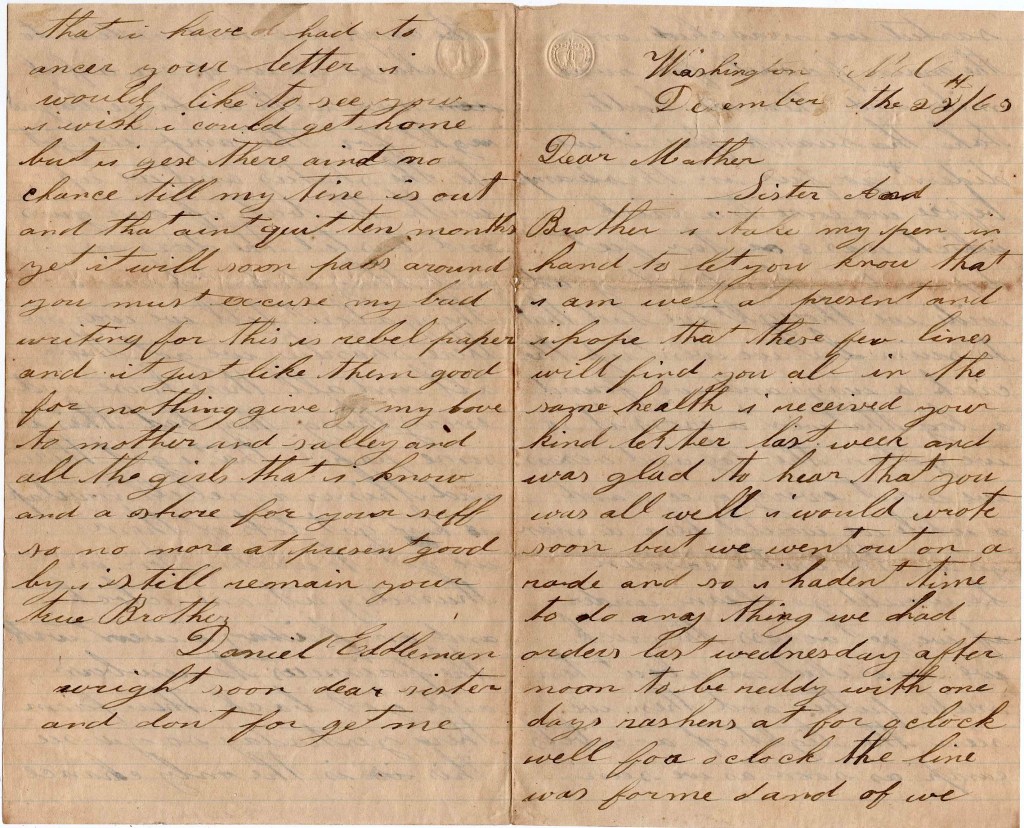 Washington N. C
December the 22/63
Dear Mather
Sister And
Brother i take my pen in
hand to let you know that
i am well at present and
i hope that these few lines
will find you all in the
same health i received your
kind letter last week and
was glad to hear that you
was all well i would wrote
soon but we went out on a
rade and so i hadent time
to do any thing we had
orders last wednesday after
noon to be reddy with one
days rashens at for oclock
well for oclock the line
was forme d and of we
that i have had to
ancer your letter i
would like to see you
i wish i could get home
but i gese there aint no
chance till my time is out
and that ain't quit ten months
yet it will soon pass around
you must excuse my bad
writing for this is rebel paper
and it just like them good
for nothing give my love
to mother and salley and
all the girls that i know
and a shore for your seff
so no more at present good
by i still remain your
true Brother
Daniel Eddleman
wright soon dear sister
and dont for get me